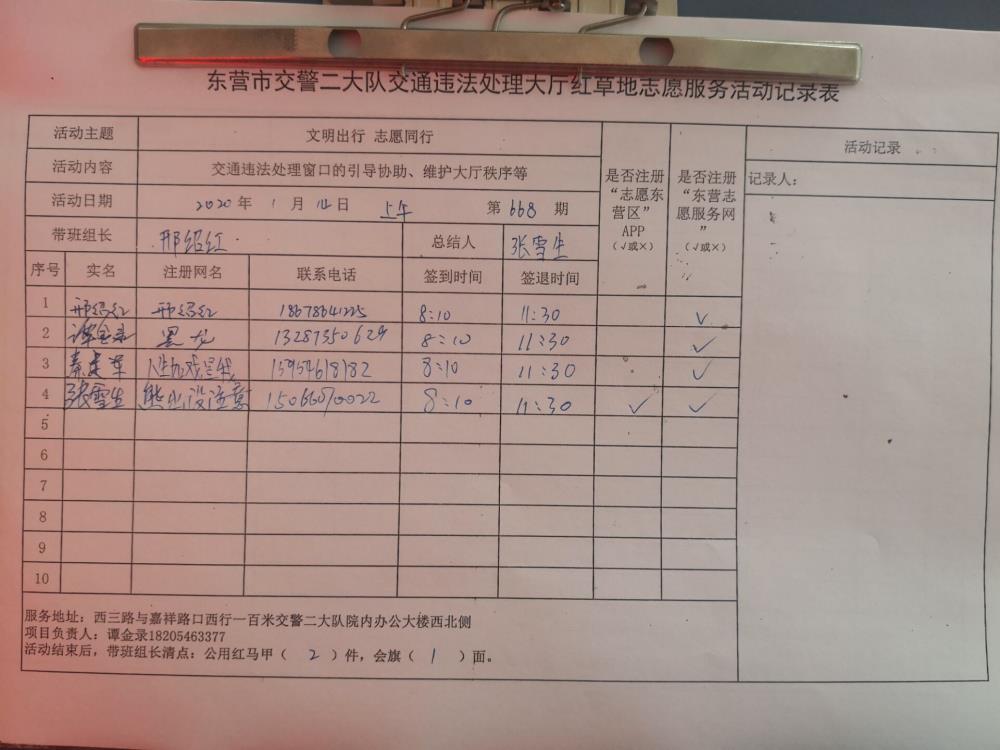 东营市交警二大队交通违法处理大厅红草地志愿服务活动记录表
活动主题 文明出行 志愿同行
活动内容 交通违法处理窗口的引导协助、维护大厅秩序等
活动日期 2020年 1月14日 上午 第668期
带班组长 邢绍红 总结人 张雪生
是否注册“志愿东营区”APP(√或×)
是否注册“东营志愿服务网”(√或×)
活动记录
记录人:
序号 实名 注册网名 联系电话 签到时间 签退时间
1 邢绍红 邢绍红 8:10 11:30 √
2 谭金录 黑龙 13287350629 8:10 11:30 √
3 秦建军 15954618182 8:10 11:30 √
4 张雪生 熊出没注意 15066070022 8:10 11:30 √ √
5
6
7
8
9
10
服务地址:西三路与嘉祥路口西行一百米交警二大队院内办公大楼西北侧
项目负责人:谭金录18205463377
活动结束后,带班组长清点:公用红马甲( 2 )件,会旗( 1 )面。